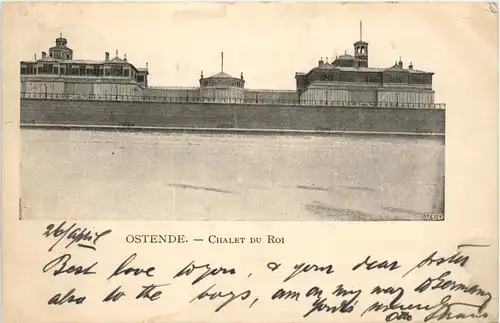 OSTENDE. — CHALET DU ROI
26/april
Best love to you, & your dear sister
also to the boys, am on my way to Germany
Yours
Otto